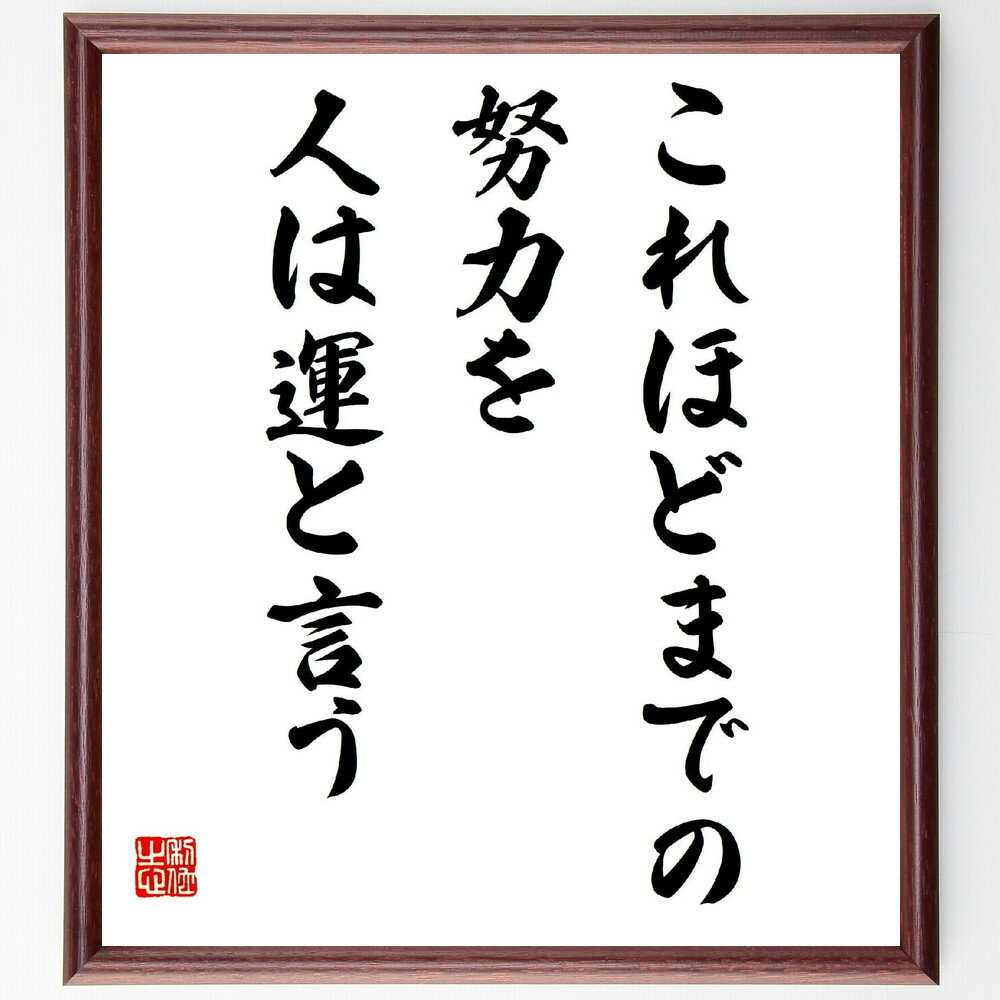 これほどまでの
努力を
人は運と言う